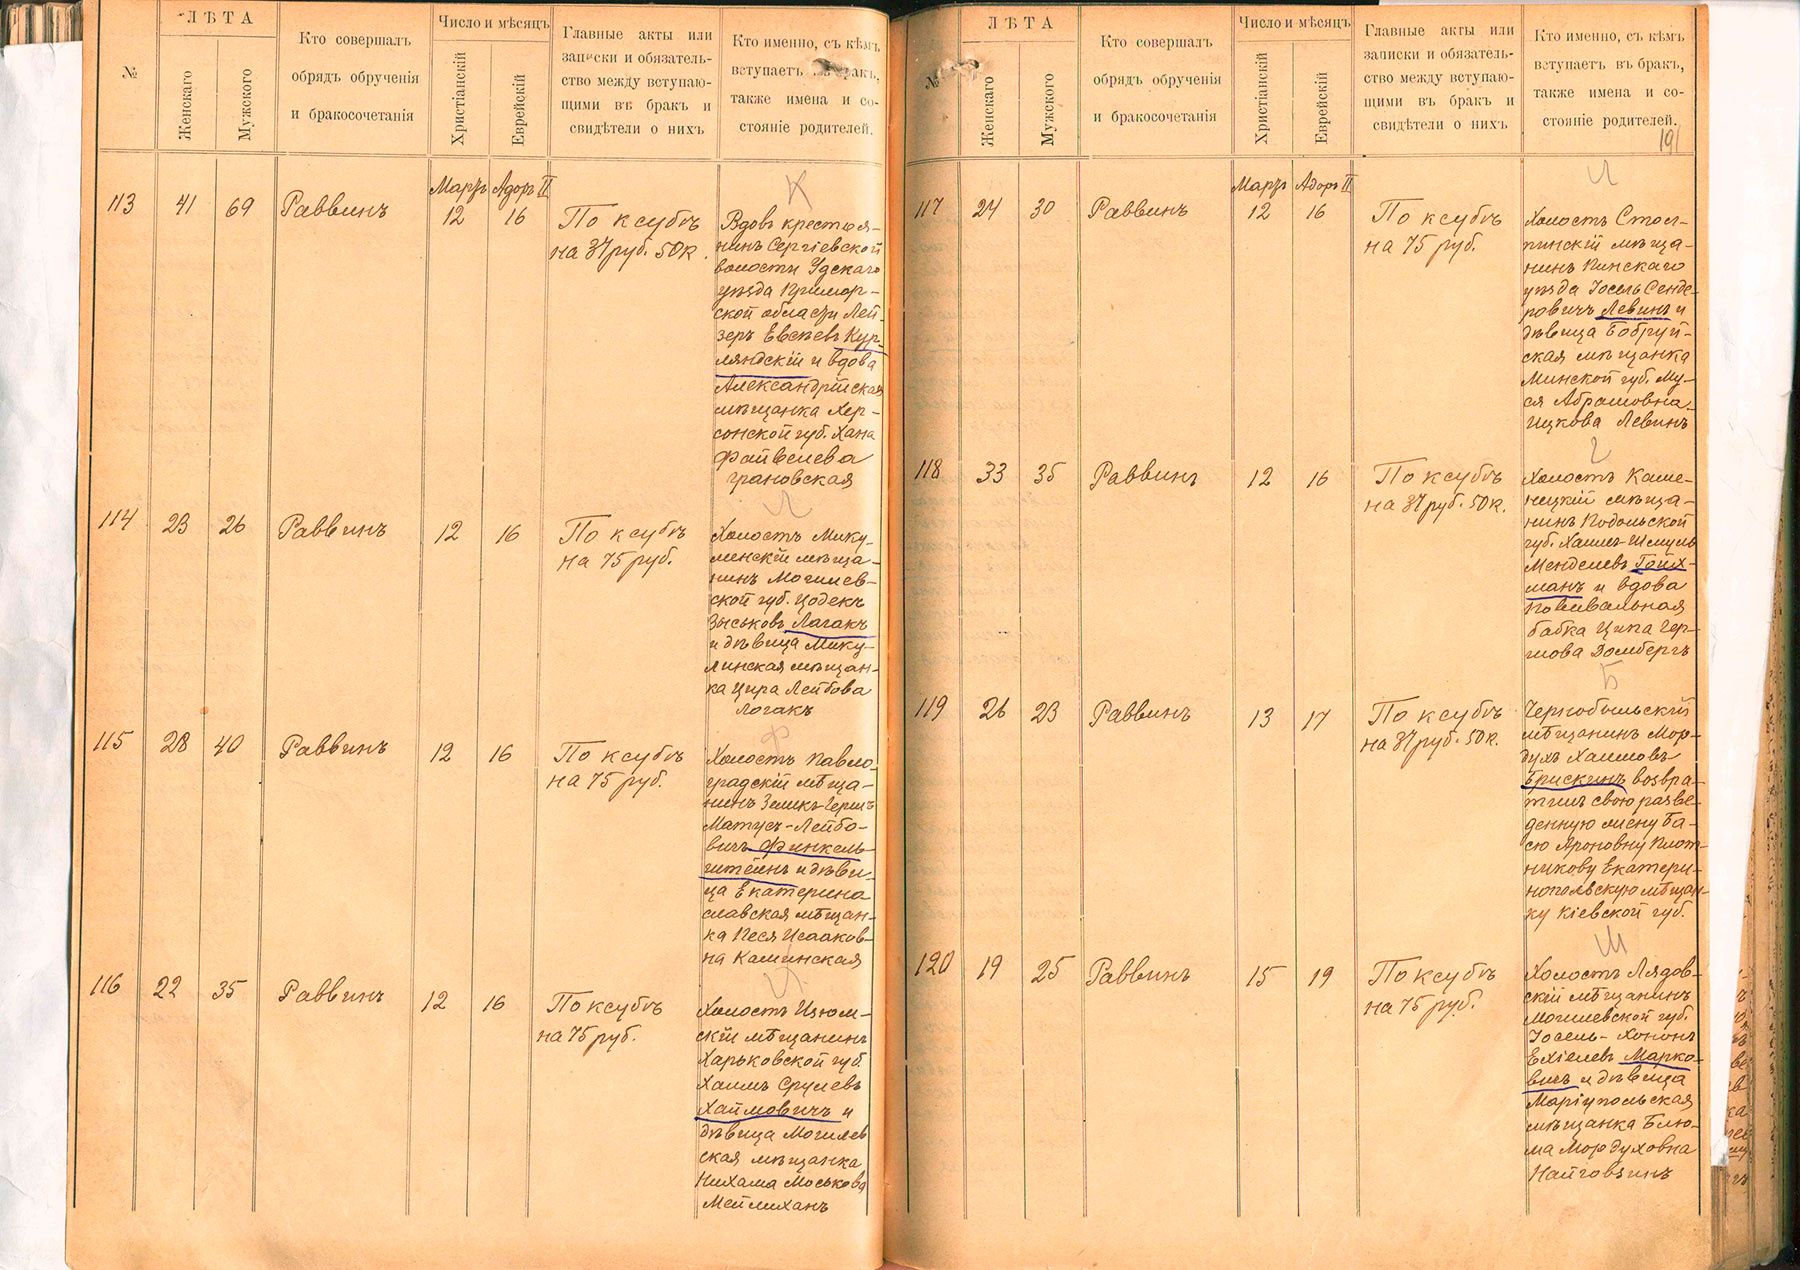 ЛѢТА
№
Женскаго
Мужского
Кто совершалъ
обрядъ обрученія
и бракосочетанія
Число и мѣсяцъ
Христіанскій
Еврейскій
Главные акты или
записки и обязатель-
ство между вступаю-
щими въ бракъ и
свидѣтели о нихъ
Кто именно, съ кѣмъ
вступаетъ въ бракъ,
также имена и со-
стояніе родителей.
Мартъ Адоръ II
К
113 41 69 Раввинъ 12 16
По ксубѣ
на 37 руб. 50 к.
Вдовъ крестья-
нинъ Сергіевской
волости Удскаго
уѣзда Примор-
ской области Лей-
зеръ Евсѣевъ Кур-
ляндскій и вдова
Александрійская
мѣщанка Хер-
сонской губ. Хана
Файвелева
Грановская
Л
114 23 26 Раввинъ 12 16
По ксубѣ
на 75 руб.
Холостъ Мику-
линскій мѣща-
нинъ Могилев-
ской губ. Цодекъ
Зыськовъ Лагакъ
и дѣвица Мику-
линская мѣщан-
ка Цира Лейбова
Логакъ
Ф
115 28 40 Раввинъ 12 16
По ксубѣ
на 75 руб.
Холостъ Павло-
градскій мѣща-
нинъ Зеликъ-Гершъ
Матусъ-Лейбо-
вичъ Финкель-
штейнъ и дѣви-
ца Екатерино-
славская мѣщан-
ка Песя Исааков-
на Каминская
116 22 35 Раввинъ 12 16
По ксубѣ
на 75 руб.
Холостъ Изюм-
скій мѣщанинъ
Харьковской губ.
Хаимъ Срулевъ
Хаймовичъ и
дѣвица Могилев
ская мѣщанка
Нихама Моськова
Мейлиханъ
ЛѢТА
№
Женскаго
Мужского
Кто совершалъ
обрядъ обрученія
и бракосочетанія
Число и мѣсяцъ
Христіанскій
Еврейскій
Главные акты или
записки и обязатель-
ство между вступаю-
щими въ бракъ и
свидѣтели о нихъ
Кто именно, съ кѣмъ
вступаетъ въ бракъ,
также имена и со-
стояніе родителей.
191
Мартъ Адоръ II
Л
117 24 30 Раввинъ 12 16
По ксубѣ
на 75 руб.
Холостъ Стол-
пинскій мѣща-
нинъ Пинскаго
уѣзда Іосель Сенде-
ровичъ Левинъ и
дѣвица Бобруй-
ская мѣщанка
Минской губ. Му-
ся Абрамовна-
Ицкова Левинъ
Г
118 33 35 Раввинъ 12 16
По ксубѣ
на 37 руб. 50 к.
Холостъ Каме-
нецкій мѣща-
нинъ Подольской
губ. Хаимъ-Шмуль
Менделевъ Гойх-
манъ и вдова
повивальная
бабка Ципа Гер-
шова Домбергъ
Б
119 26 23 Раввинъ 13 17
По ксубѣ
на 37 руб. 50 к.
Чернобыльскій
мѣщанинъ Мор-
духъ Хаимовъ
Брискинъ возвра-
тилъ свою разве-
денную жену Ба-
сю Ароновну Плот-
никову Екатери-
нопольскую мѣщан-
ку Кіевской губ.
М
120 19 25 Раввинъ 15 19
По ксубѣ
на 75 руб.
Холостъ Лядов-
скій мѣщанинъ
Могилевской губ.
Іосель-Хононъ
Ехіелевъ Марко-
вичъ и дѣвица
Маріупольская
мѣщанка Блю-
ма Мордуховна
Найговзинъ